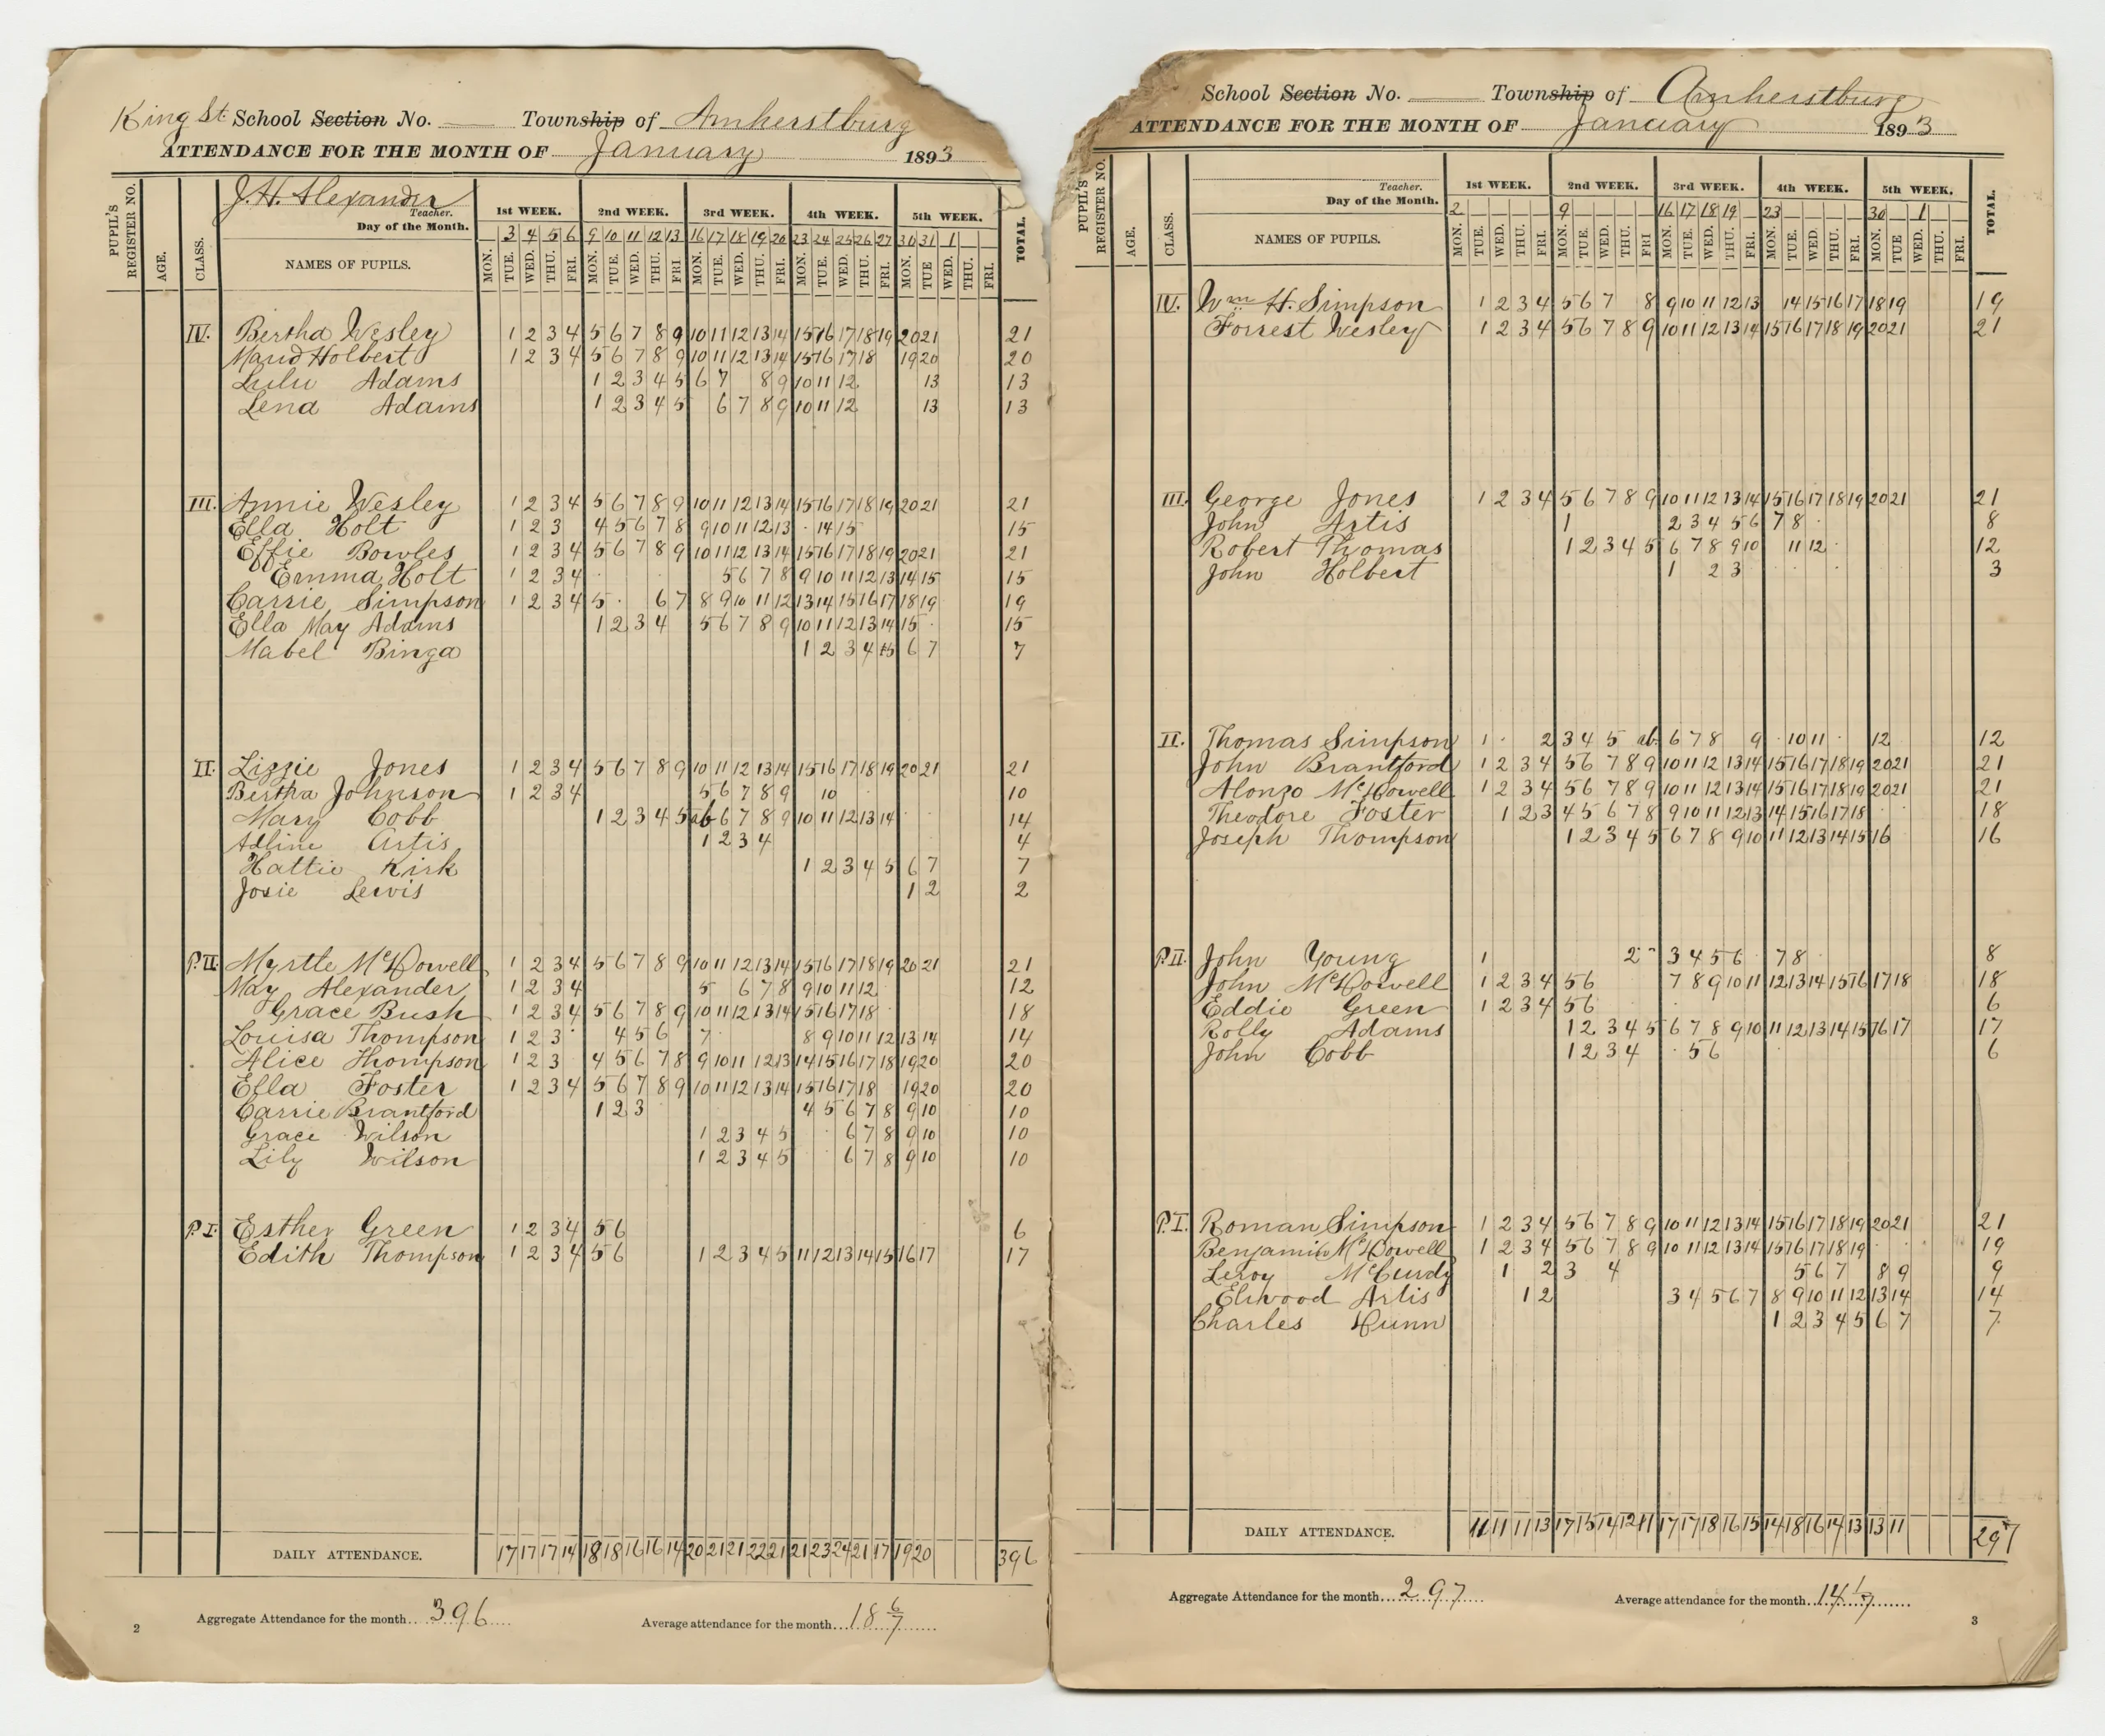 King St. School Section No. Township of Amherstburg
ATTENDANCE FOR THE MONTH OF January 1893
PUPIL'S REGISTER NO.
AGE.
CLASS.
J. H. Alexander
Teacher.
Day of the Month.
NAMES OF PUPILS.
1st WEEK. 2nd WEEK. 3rd WEEK. 4th WEEK. 5th WEEK. TOTAL.
3 4 5 6 9 10 11 12 13 16 17 18 19 20 23 24 25 26 27 30 31 1
MON. TUE. WED. THU. FRI. MON. TUE. WED. THU. FRI. MON. TUE. WED. THU. FRI. MON. TUE. WED. THU. FRI. MON. TUE WED. THU. FRI.
IV. Bertha Wesley 1 2 3 4 5 6 7 8 9 10 11 12 13 14 15 16 17 18 19 20 21 21
Maud Holbert 1 2 3 4 5 6 7 8 9 10 11 12 13 14 15 16 17 18 19 20 20
Lulu Adams 1 2 3 4 5 6 7 8 9 10 11 12 13 13
Lena Adams 1 2 3 4 5 6 7 8 9 10 11 12 13 13
III. Annie Wesley 1 2 3 4 5 6 7 8 9 10 11 12 13 14 15 16 17 18 19 20 21 21
Ella Holt 1 2 3 4 5 6 7 8 9 10 11 12 13 14 15 15
Effie Bowles 1 2 3 4 5 6 7 8 9 10 11 12 13 14 15 16 17 18 19 20 21 21
Emma Holt 1 2 3 4 5 6 7 8 9 10 11 12 13 14 15 15
Carrie Simpson 1 2 3 4 5 6 7 8 9 10 11 12 13 14 15 16 17 18 19 19
Ella May Adams 1 2 3 4 5 6 7 8 9 10 11 12 13 14 15 15
Mabel Binga 1 2 3 4 5 6 7 7
II. Lizzie Jones 1 2 3 4 5 6 7 8 9 10 11 12 13 14 15 16 17 18 19 20 21 21
Bertha Johnson 1 2 3 4 5 6 7 8 9 10 10
Mary Cobb 1 2 3 4 5 ab 6 7 8 9 10 11 12 13 14 14
Adline Artis 1 2 3 4 4
Hattie Kirk 1 2 3 4 5 6 7 7
Josie Lewis 1 2 2
P. II. Myrtle McDowell 1 2 3 4 5 6 7 8 9 10 11 12 13 14 15 16 17 18 19 20 21 21
May Alexander 1 2 3 4 5 6 7 8 9 10 11 12 12
Grace Bush 1 2 3 4 5 6 7 8 9 10 11 12 13 14 15 16 17 18 18
Louisa Thompson 1 2 3 4 5 6 7 8 9 10 11 12 13 14 14
Alice Thompson 1 2 3 4 5 6 7 8 9 10 11 12 13 14 15 16 17 18 19 20 20
Ella Foster 1 2 3 4 5 6 7 8 9 10 11 12 13 14 15 16 17 18 19 20 20
Carrie Brantford 1 2 3 4 5 6 7 8 9 10 10
Grace Wilson 1 2 3 4 5 6 7 8 9 10 10
Lily Wilson 1 2 3 4 5 6 7 8 9 10 10
P. I. Esther Green 1 2 3 4 5 6 6
Edith Thompson 1 2 3 4 5 6 1 2 3 4 5 11 12 13 14 15 16 17 17
DAILY ATTENDANCE. 17 17 17 14 18 18 16 16 14 20 21 21 22 21 21 23 24 21 17 19 20 396
Aggregate Attendance for the month 396 Average attendance for the month 18 6/7
2
School Section No. Township of Amherstburg
ATTENDANCE FOR THE MONTH OF January 1893
PUPIL'S REGISTER NO.
AGE.
CLASS.
Teacher.
Day of the Month.
NAMES OF PUPILS.
1st WEEK. 2nd WEEK. 3rd WEEK. 4th WEEK. 5th WEEK. TOTAL.
2 9 16 17 18 19 23 30 1
MON. TUE. WED. THU. FRI. MON. TUE. WED. THU. FRI MON. TUE. WED. THU. FRI. MON. TUE. WED. THU. FRI. MON. TUE WED. THU. FRI.
IV. Wm H. Simpson 1 2 3 4 5 6 7 8 9 10 11 12 13 14 15 16 17 18 19 19
Forrest Wesley 1 2 3 4 5 6 7 8 9 10 11 12 13 14 15 16 17 18 19 20 21 21
III. George Jones 1 2 3 4 5 6 7 8 9 10 11 12 13 14 15 16 17 18 19 20 21 21
John Artis 1 2 3 4 5 6 7 8 8
Robert Thomas 1 2 3 4 5 6 7 8 9 10 11 12 12
John Holbert 1 2 3 3
II. Thomas Simpson 1 2 3 4 5 ab. 6 7 8 9 10 11 12 12
John Brantford 1 2 3 4 5 6 7 8 9 10 11 12 13 14 15 16 17 18 19 20 21 21
Alonzo McDowell 1 2 3 4 5 6 7 8 9 10 11 12 13 14 15 16 17 18 19 20 21 21
Theodore Foster 1 2 3 4 5 6 7 8 9 10 11 12 13 14 15 16 17 18 18
Joseph Thompson 1 2 3 4 5 6 7 8 9 10 11 12 13 14 15 16 16
P. II. John Young 1 2 3 4 5 6 7 8 8
John McDowell 1 2 3 4 5 6 7 8 9 10 11 12 13 14 15 16 17 18 18
Eddie Green 1 2 3 4 5 6 6
Rolly Adams 1 2 3 4 5 6 7 8 9 10 11 12 13 14 15 16 17 17
John Cobb 1 2 3 4 5 6 6
P. I. Roman Simpson 1 2 3 4 5 6 7 8 9 10 11 12 13 14 15 16 17 18 19 20 21 21
Benjamin McDowell 1 2 3 4 5 6 7 8 9 10 11 12 13 14 15 16 17 18 19 19
Leroy McCurdy 1 2 3 4 5 6 7 8 9 9
Elwood Artis 1 2 3 4 5 6 7 8 9 10 11 12 13 14 14
Charles Hunn 1 2 3 4 5 6 7 7
DAILY ATTENDANCE. 11 11 11 13 17 15 14 12 11 17 17 18 16 15 14 18 16 14 13 13 11 297
Aggregate Attendance for the month 297 Average attendance for the month 14 1/7
3